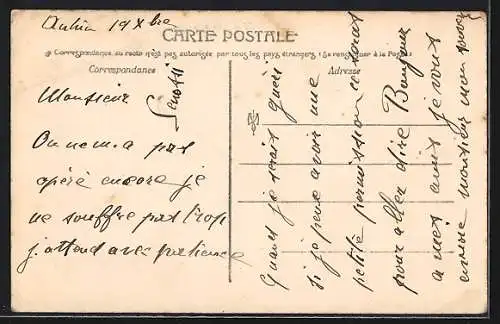 19 Xbre
CARTE POSTALE
Correspondance au recto n'est pas autorisée par tous les pays étrangers (Se renseigner à la Poste)
Correspondance
Adresse
Monsieur
On ne m.a pas
opéré encore je
ne souffre pas trop
j.attend avec patience
Quand je serais guéri
si je peux avoir une
petite permission ce serait
pour aller dire Bonjour
a mes amis je vous
envoie monsieur mon